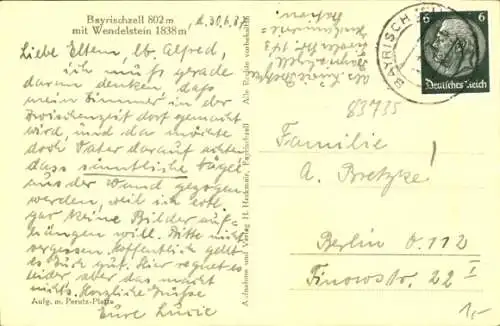 Bayrischzell 802 m
mit Wendelstein 1838 m
d. 30.6.37
Liebe Eltern, lb. Alfred,
ich muß gerade
daran denken, daß
mein Zimmer in der
Zwischenzeit dort gemacht
wird, und da möchte
doch Vater darauf achten
dass sämtliche Nägel
aus der Wand gezogen
werden, weil ich erst
gar keine Bilder auf-
hängen will. Bitte nicht
vergessen. Hoffentlich geht
es Euch gut. Hier regnet es
leider aber das macht
nichts. Herzliche Grüße
Eure Lucie
Aufg. m. Perutz-Platte
Alle Rechte vorbehalten
Aufnahme und Verlag H. Heckmair, Bayrischzell
Bayrischzell
BAYRISCH
6 6
Deutsches Reich
83735
Familie
A. Bretzke!
Berlin O.112
Tinowstr. 22 I
1,-